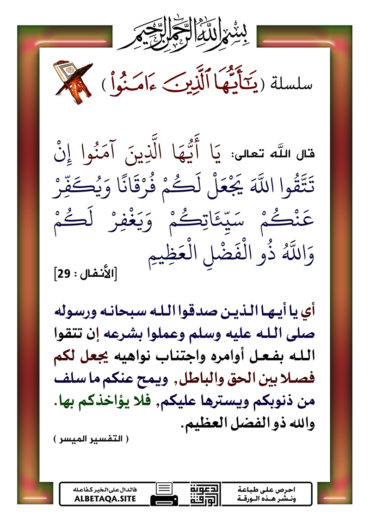 بسم الله الرحمن الرحيم
سلسلة (يَـٰٓأَيُّهَا ٱلَّذِينَ ءَامَنُوا۟)
قال اللَّه تعالى: يَا أَيُّهَا الَّذِينَ آمَنُوا إِنْ
تَتَّقُوا اللَّهَ يَجْعَلْ لَكُمْ فُرْقَانًا وَيُكَفِّرْ
عَنْكُمْ سَيِّئَاتِكُمْ وَيَغْفِرْ لَكُمْ
وَاللَّهُ ذُو الْفَضْلِ الْعَظِيمِ
[الأنفال : 29]
أي يا أيها الذين صدقوا الله سبحانه ورسوله
صلى الله عليه وسلم وعملوا بشرعه إن تتقوا
الله بفعل أوامره واجتناب نواهيه يجعل لكم
فصلا بين الحق والباطل, ويمح عنكم ما سلف
من ذنوبكم ويسترها عليكم, فلا يؤاخذكم بها.
والله ذو الفضل العظيم.
( التفسير الميسر )
احرص على طباعة
ونشر هذه الورقة
الورقة الدعوية
فالدال على الخير كفاعله
ALBETAQA.SITE